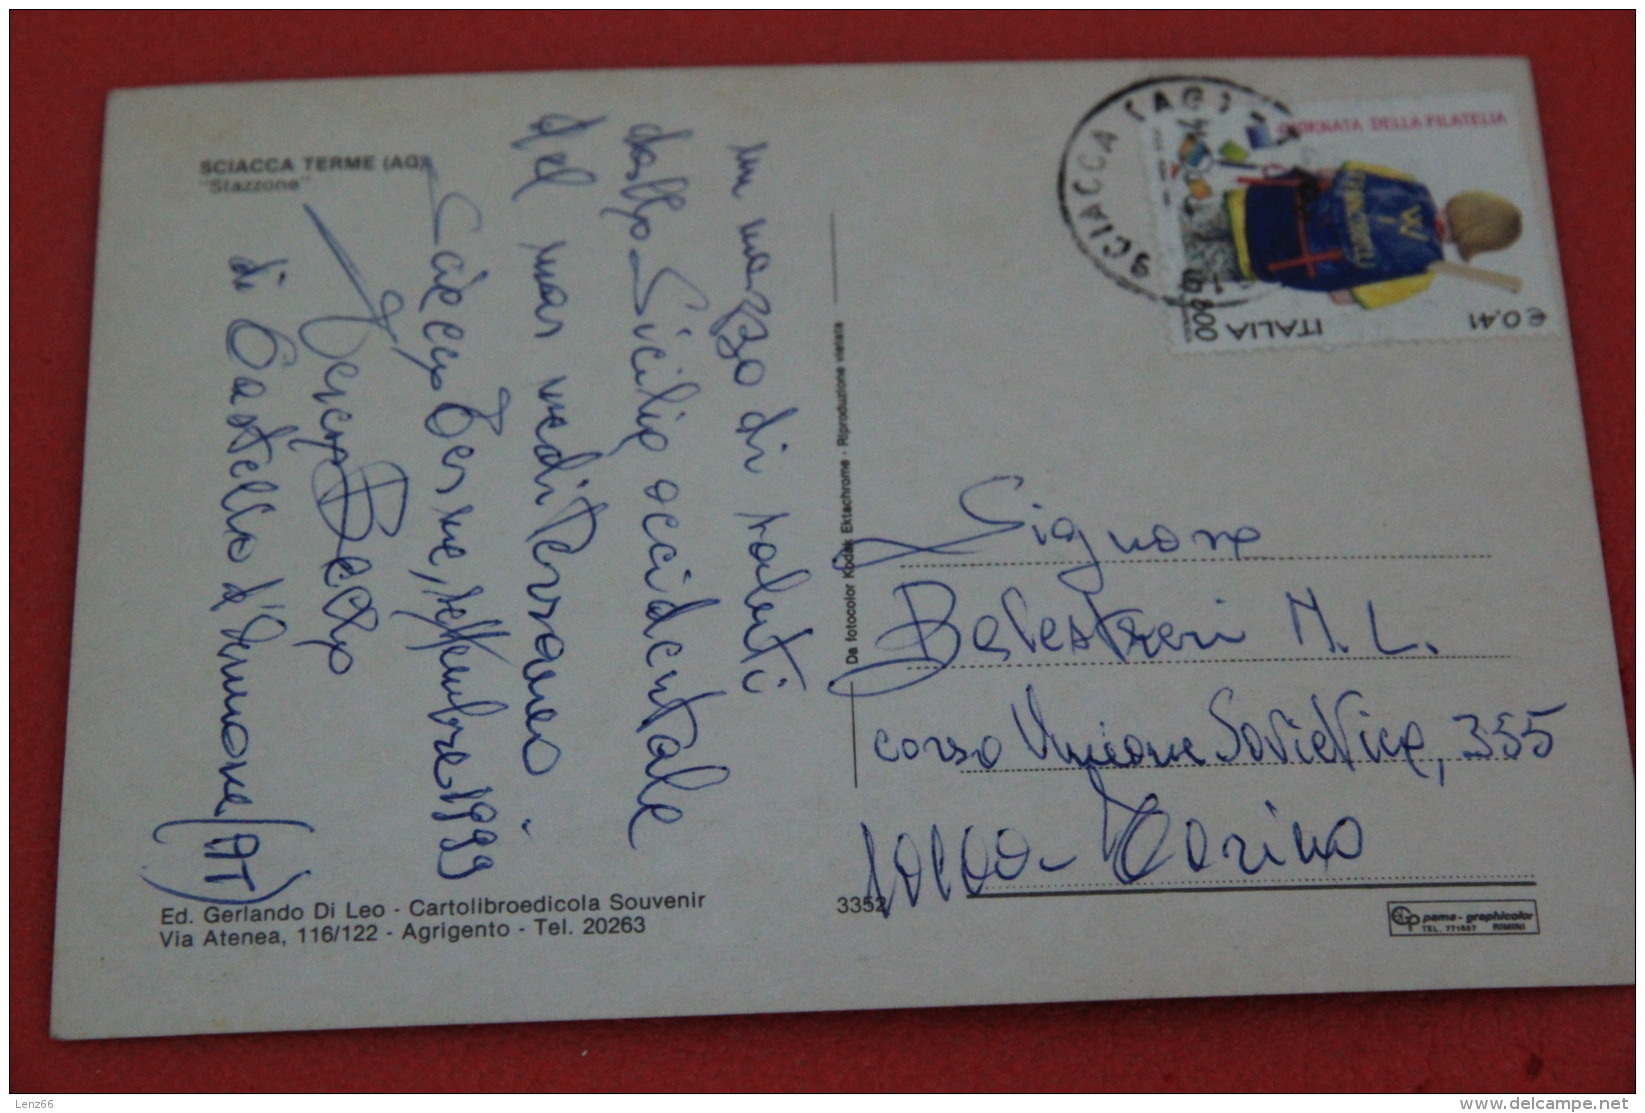 SCIACCA TERME (AG)
"Stazzone"
un mazzo di saluti
dalla Sicilia occidentale
del mar mediterraneo.
Sciacca Terme, settembre 1999
Teresa Bella
di Castello d'Annone (AT)
Ed. Gerlando Di Leo - Cartolibroedicola Souvenir
Via Atenea, 116/122 - Agrigento - Tel. 20263
Da fotocolor Kodak Ektachrome - Riproduzione vietata
3352
SCIACCA (AG)
GIORNATA DELLA FILATELIA
W
ITALIA
800
€0,41
Signora
Balestreri M. L.
corso Unione Sovietica, 355
Torino
pama - graphicolor
TEL. 771657 RIMINI
Lenz66
www.delcampe.net